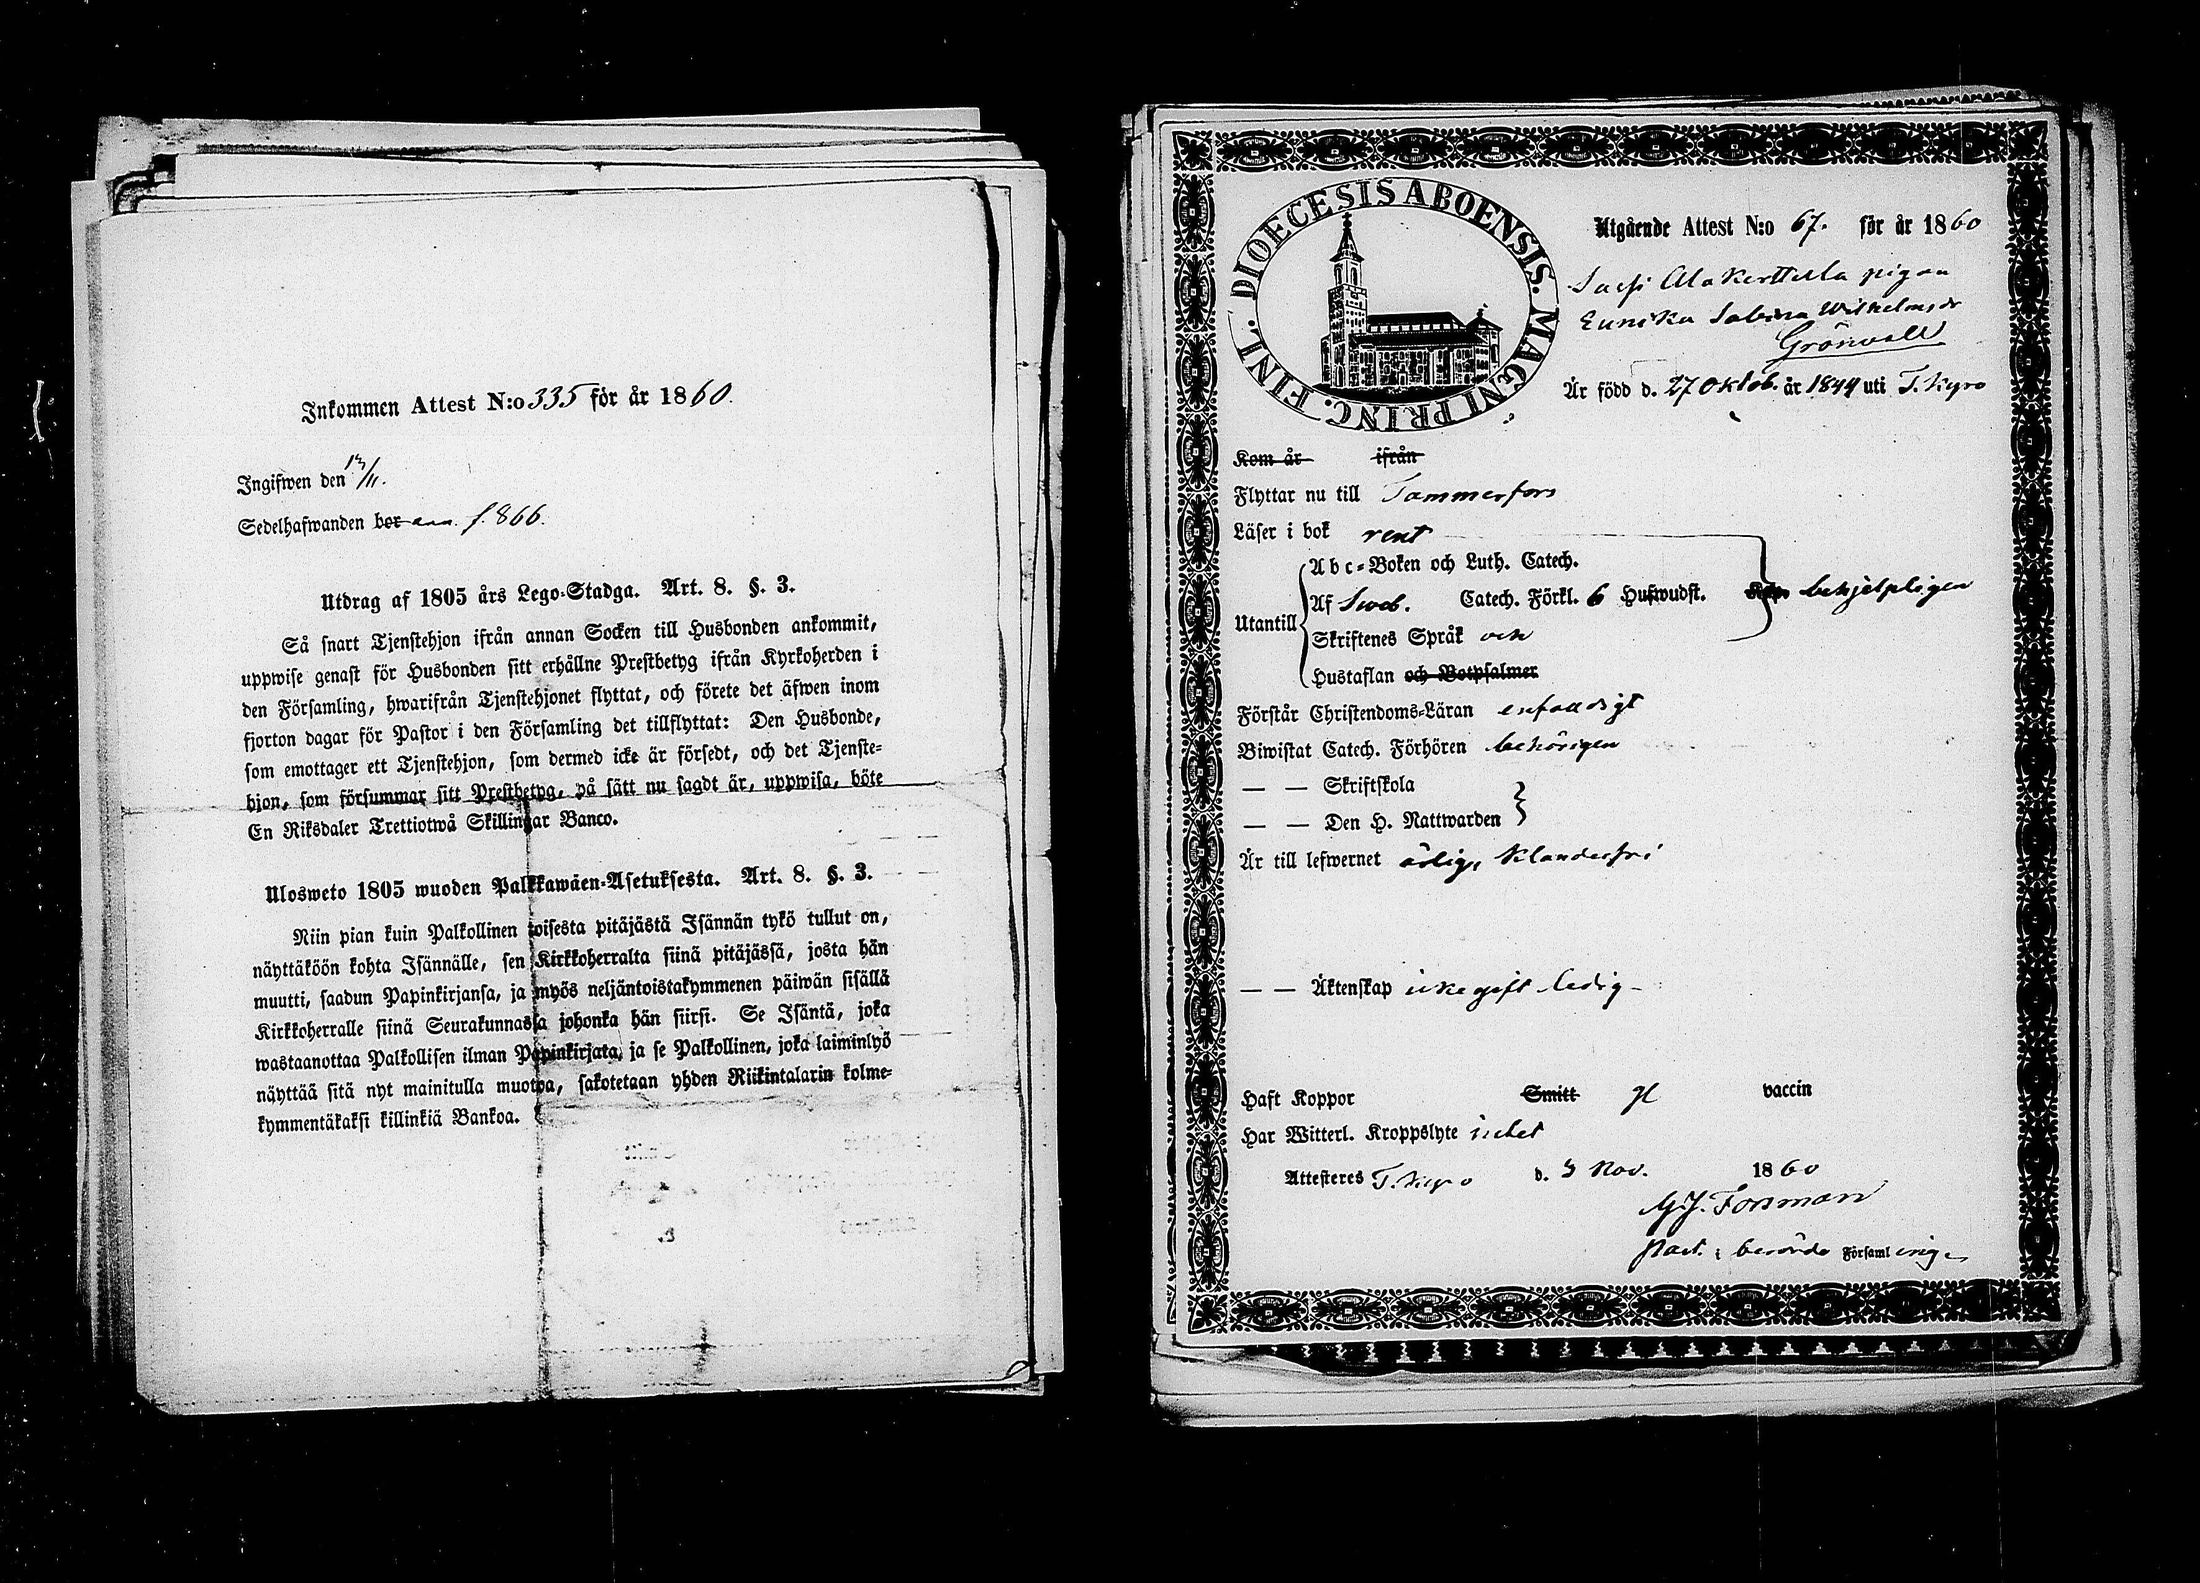 Inkommen Attest N:o 335 för år 1860.
Ingifwen den 13/11.
Sedelhafwanden bor ann. f. 866.
Utdrag af 1805 års Lego-Stadga. Art. 8. §. 3.
Så snart Tjenstehjon ifrån annan Socken till Husbonden ankommit,
uppwise genast för Husbonden sitt erhållne Prestbetyg ifrån Kyrkoherden i
den Församling, hwarifrån Tjenstehjonet flyttat, och förete det äfwen inom
fjorton dagar för Pastor i den Församling det tillflyttat: Den Husbonde,
som emottager ett Tjenstehjon, som dermed icke är försedt, och det Tjenste-
hjon, som försummar sitt Prestbetyg, på sätt nu sagdt är, uppwisa, böte
En Riksdaler Trettiotwå Skillingar Banco.
Ulosweto 1805 wuoden Palkkawäen-Asetuksesta. Art. 8. §. 3.
Niin pian kuin Palkollinen toisesta pitäjästä Isännän tykö tullut on,
näyttäköön kohta Isännälle, sen Kirkkoherralta siinä pitäjässä, josta hän
muutti, saadun Papinkirjansa, ja myös neljäntoistakymmenen päiwän sisällä
Kirkkoherralle siinä Seurakunnassa johonka hän siirsi. Se Isäntä, joka
wastaanottaa Palkollisen ilman Papinkirjata, ja se Palkollinen, joka laiminlyö
näyttää sitä nyt mainitulla muotoa, sakotetaan yhden Riikintalarin kolme-
kymmentäkaksi killinkiä Bankoa.
DIOECESIS ABOENSIS. MAGNI PRINC. FINL.
Utgående Attest N:o 67. för år 1860
Alakerttula pigan
Eunika Sabina Wilhelmsdr
Grönvall
Är född d. 27 Oktob. år 1844 uti T. Kyro
Kom år ifrån
Flyttar nu till Tammerfors
Läser i bok rent
Abc-Boken och Luth. Catech.
Utantill Af Sweb. Catech. Förkl. 6 Hufwudst. behjelpligen
Skriftenes Språk och
Hustaflan och Botpsalmer
Förstår Christendoms-Läran enfaldigt
Biwistat Catech. Förhören behörigen
— — Skriftskola
— — Den H. Nattwarden
Är till lefwernet ärlig, klanderfri
— — Äktenskap icke gift ledig –
Haft Koppor Smitt gl vaccin
Har Witterl. Kroppslyte intet
Attesteres T. Kyro d. 3 Nov. 1860
G. J. Forsman
Past. i berörde Församling